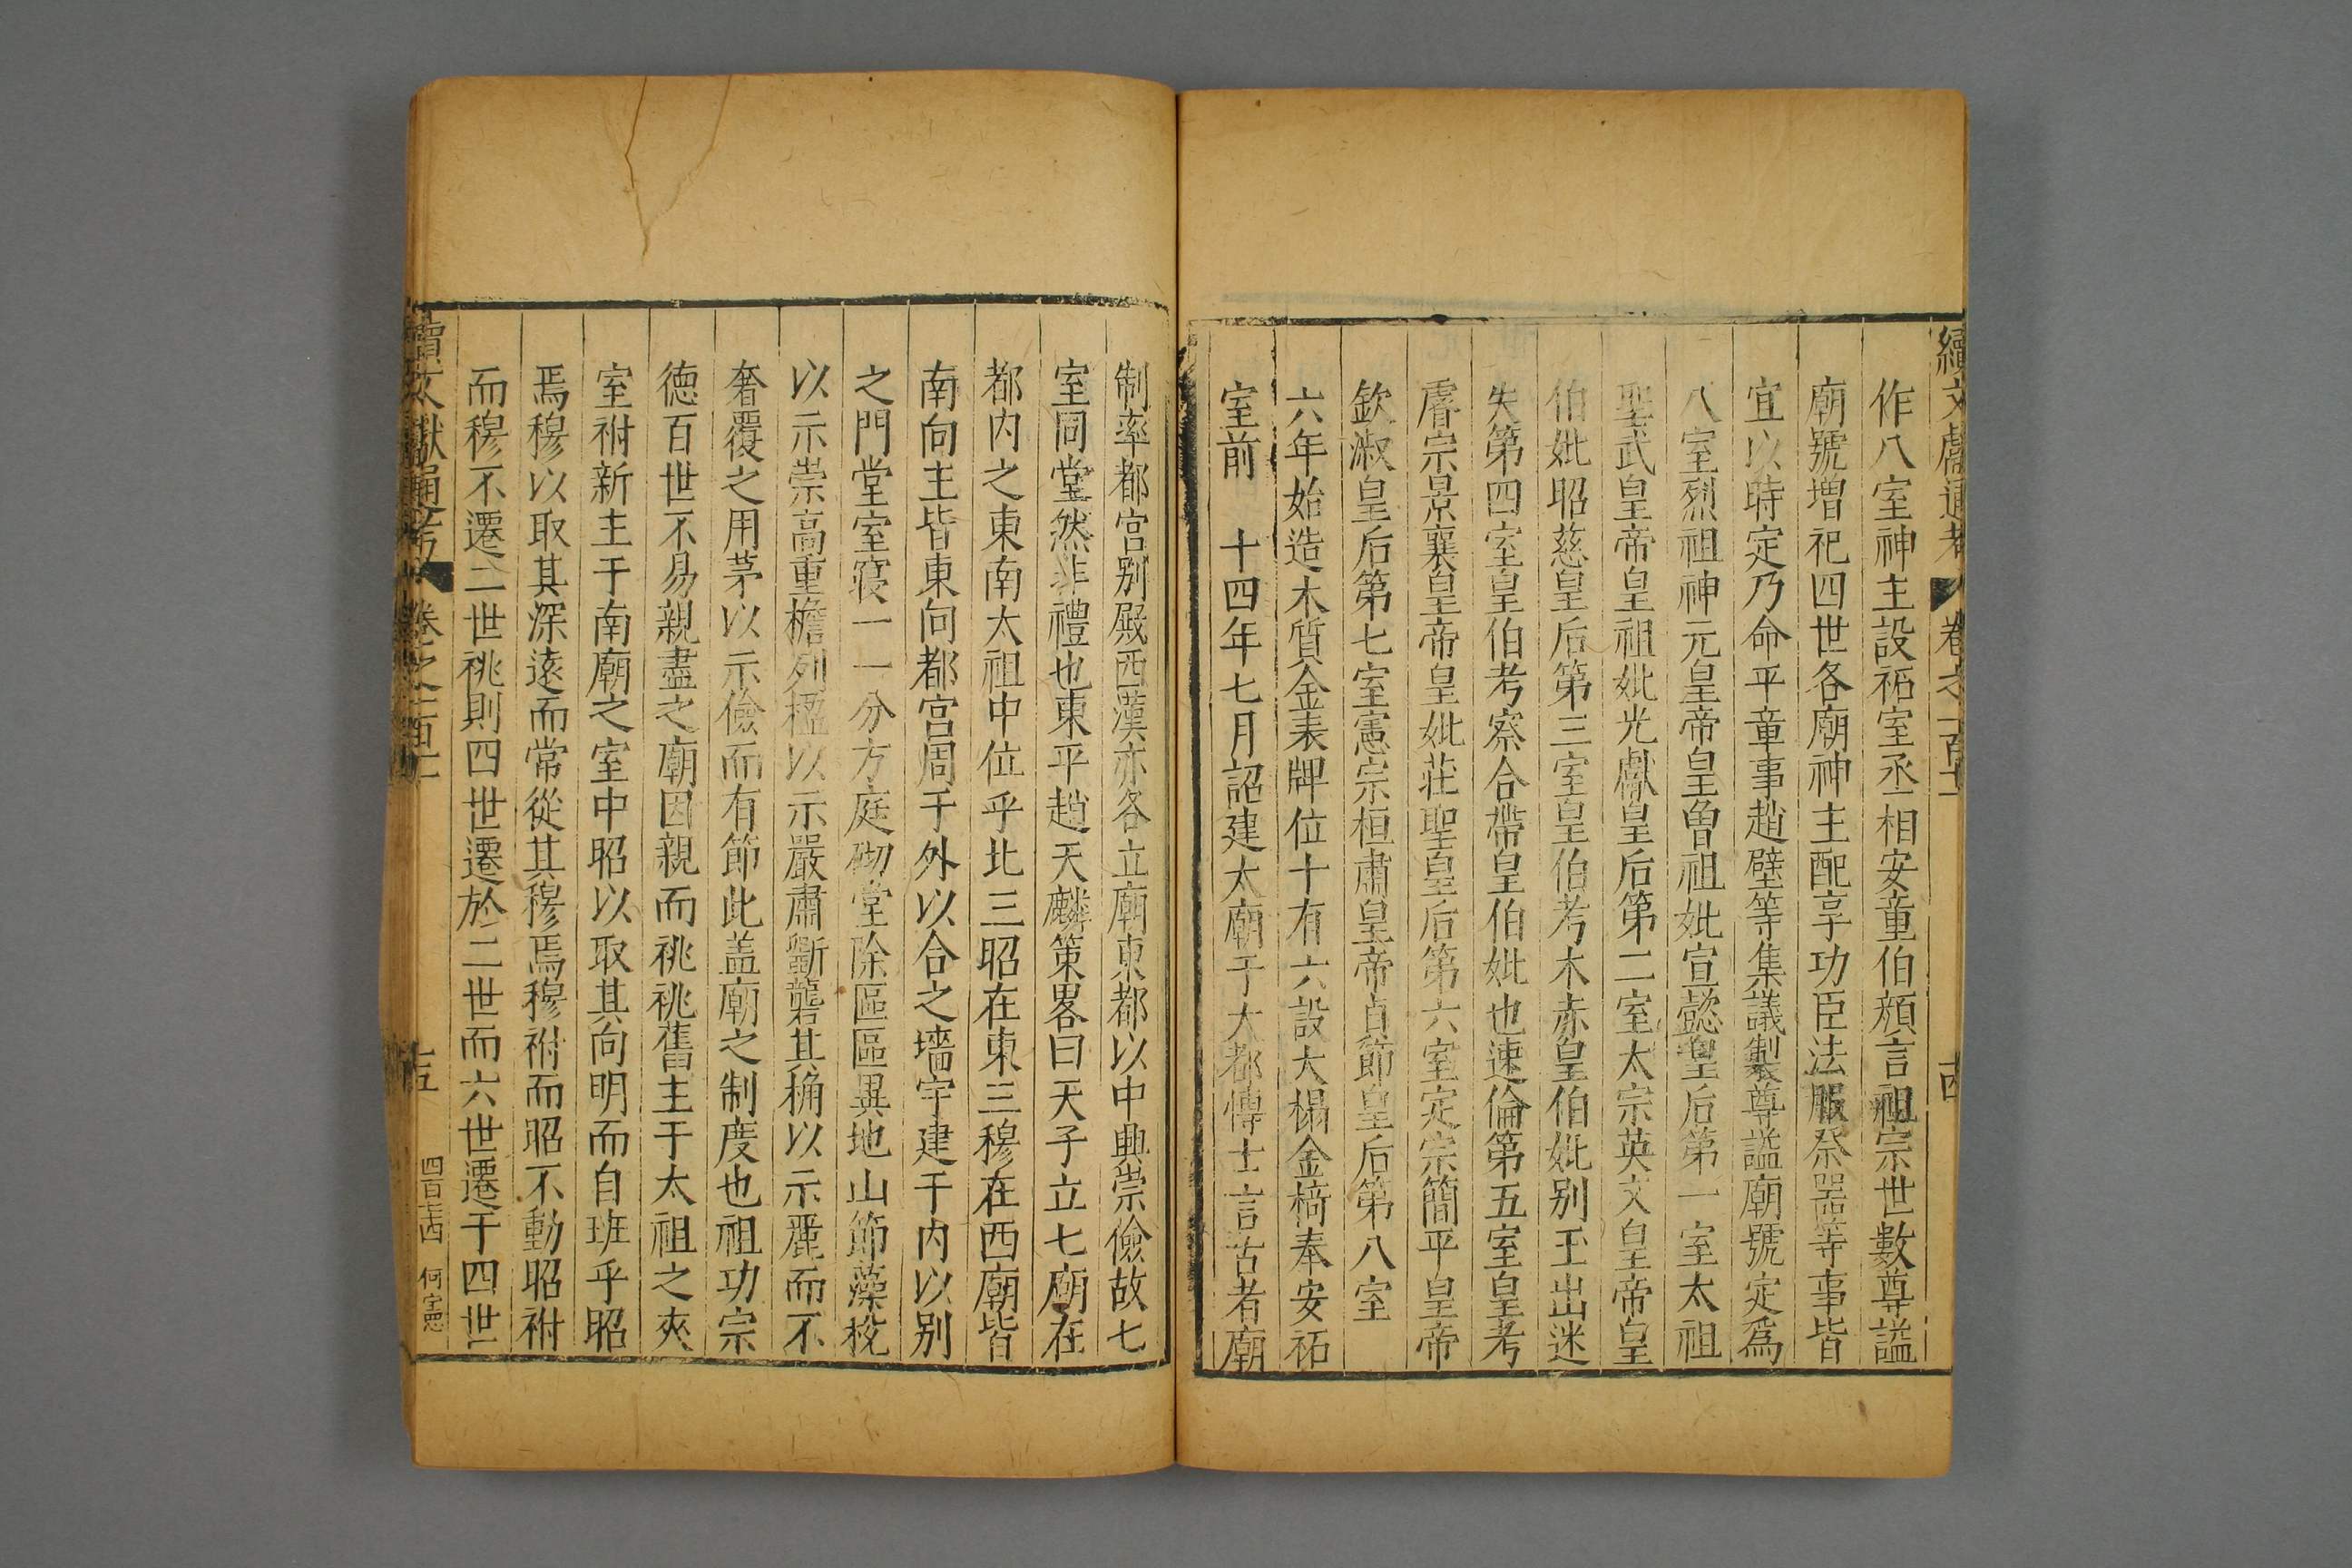 續文獻通考 卷之一百十 十四
作八室神主設祏室丞相安童伯顏言祖宗世數尊謚
廟號增祀四世各廟神主配享功臣法服祭器等事皆
宜以時定乃命平章事趙璧等集議製尊謚廟號定爲
八室烈祖神元皇帝皇曾祖妣宣懿皇后第一室太祖
聖武皇帝皇祖妣光獻皇后第二室太宗英文皇帝皇
伯妣昭慈皇后第三室皇伯考木赤皇伯妣别玉出迷
失第四室皇伯考察合帶皇伯妣也速倫第五室皇考
睿宗景襄皇帝皇妣莊聖皇后第六室定宗簡平皇帝
欽淑皇后第七室憲宗桓肅皇帝貞節皇后第八室
六年始造木質金表牌位十有六設大榻金椅奉安祏
室前 十四年七月詔建太廟于大都愽士言古者廟
制率都宮别殿西漢亦各立廟東都以中興崇儉故七
室同堂然非禮也東平趙天麟策畧曰天子立七廟在
都内之東南太祖中位乎北三昭在東三穆在西廟皆
南向主皆東向都宮周于外以合之墻宇建于内以别
之門堂室寢一一分方庭砌堂除區區異地山節藻梲
以示崇高重檐列楹以示嚴肅斵礱其桷以示麗而不
奢覆之用茅以示儉而有節此盖廟之制度也祖功宗
徳百世不易親盡之廟因親而祧祧舊主于太祖之夾
室祔新主于南廟之室中昭以取其向明而自班乎昭
焉穆以取其深遠而常從其穆焉穆祔而昭不動昭祔
而穆不遷二世祧則四世遷於二世而六世遷于四世
續文獻通考 卷之一百十 十五